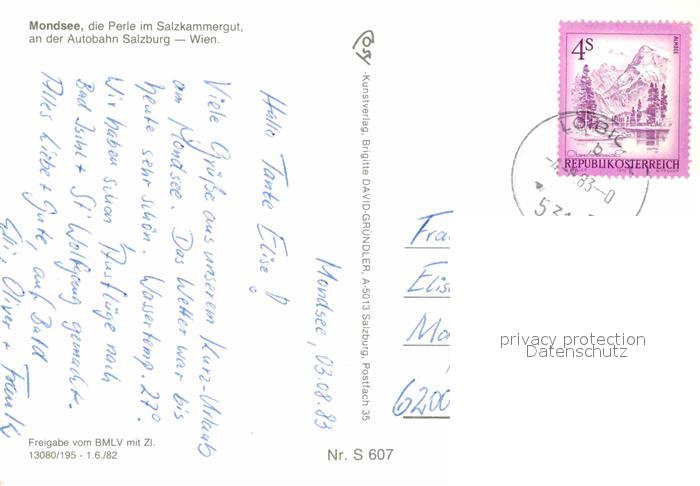 Mondsee, die Perle im Salzkammergut,
an der Autobahn Salzburg — Wien.
Mondsee, 03.08.83
Hallo Tante Elise!
Viele Grüße aus unserem Kurz-Urlaub
am Mondsee. Das Wetter war bis
heute sehr schön. Wassertemp. 27°.
Wir haben schon Ausflüge nach
Bad Ischl + St. Wolfgang gemacht.
Alles Liebe + Gute, auf Bald
Elli, Oliver + Frank
Freigabe vom BMLV mit Zl.
13080/195 - 1.6./82
Cosy -Kunstverlag, Brigitte DAVID-GRÜNDLER, A-5013 Salzburg, Postfach 35
Nr. S 607
4S
ALMSEE
REPUBLIK ÖSTERREICH
83-0
Fra
Elis
Ma
6200
privacy protection
Datenschutz